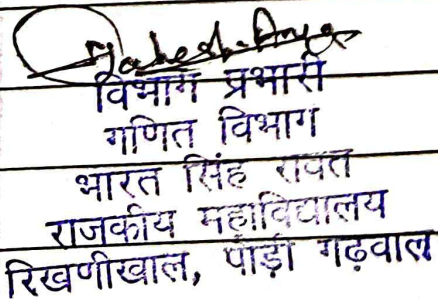 विभाग प्रभारी
गणित विभाग
भारत सिंह रावत
राजकीय महाविद्यालय
रिखणीखाल, पौड़ी गढ़वाल